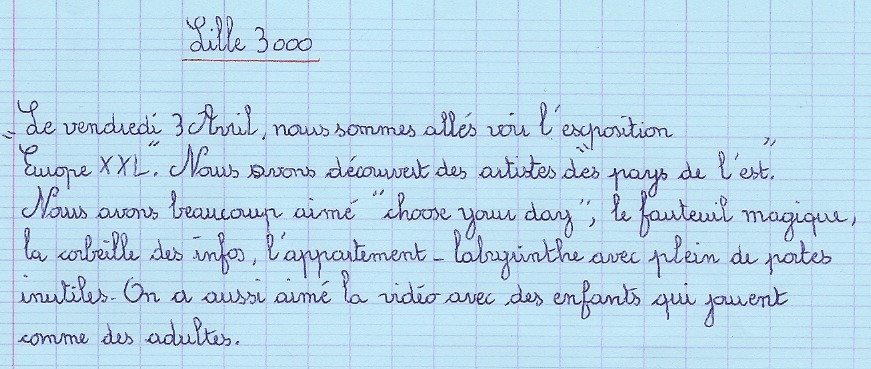 Lille 3000
Le vendredi 3 Avril, nous sommes allés voir l'exposition
"Europe XXL". Nous avons découvert des artistes "des pays de l'est".
Nous avons beaucoup aimé "choose your day", le fauteuil magique,
la corbeille des infos, l'appartement-labyrinthe avec plein de portes
inutiles. On a aussi aimé la vidéo avec des enfants qui jouent
comme des adultes.